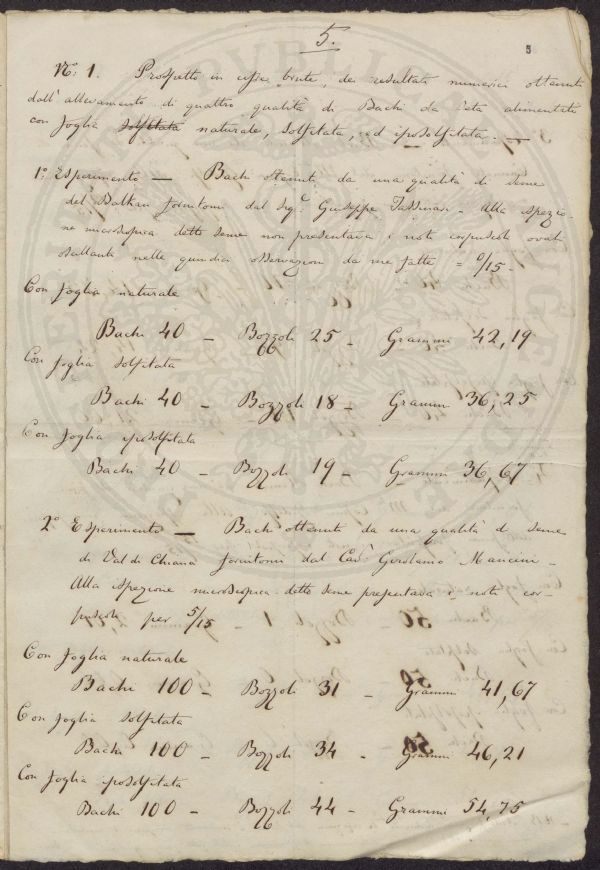 5.
5
N.º 1. Prospetto in cifre brute, de resultati numerici ottenuti
dall'allevamento di quattro qualità di Bachi da seta alimentati
con foglia solfitata naturale, solfitata, ed iposolfitata. —
1º Esperimento — Bachi ottenuti da una qualità di seme
del Balkan fornitomi dal Sigr. Giuseppe Tassinari - Alla ispezio-
ne microscopica detto seme non presentava i noti corpuscoli ovali
oscillanti nelle quindici osservazioni da me fatte = 0/15 -
Con foglia naturale
Bachi 40 — Bozzoli 25 — Grammi 42,19
Con foglia solfitata
Bachi 40 — Bozzoli 18 — Grammi 36,25
Con foglia iposolfitata
Bachi 40 — Bozzoli 19 — Grammi 36,67
2º Esperimento — Bachi ottenuti da una qualità di seme
di Val di Chiana fornitomi dal Cavr. Girolamo Mancini -
Alla ispezione microscopica detto seme presentava i noti cor-
puscoli per 5/15
Con foglia naturale
Bachi 100 — Bozzoli 31 — Grammi 41,67
Con foglia solfitata
Bachi 100 — Bozzoli 34 — Grammi 46,21
Con foglia iposolfitata
Bachi 100 — Bozzoli 44 — Grammi 54,75